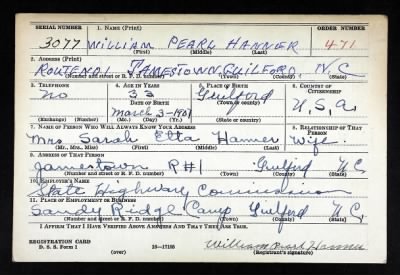 SERIAL NUMBER 1. NAME (Print) ORDER NUMBER
3077 WILLIAM PEARL HANNER 471
(First) (Middle) (Last)
2. ADDRESS (Print)
ROUTE NO. 1 JAMESTOWN GUILFORD, N.C.
(Number and street or R. F. D. number) (Town) (County) (State)
3. TELEPHONE 4. AGE IN YEARS 5. PLACE OF BIRTH 6. COUNTRY OF CITIZENSHIP
no 33 Guilford
DATE OF BIRTH (Town or county)
March 3-1907 U.S.A.
(Mo.) (Day) (Yr.) (State or country)
7. NAME OF PERSON WHO WILL ALWAYS KNOW YOUR ADDRESS 8. RELATIONSHIP OF THAT PERSON
Mrs Sarah Etta Hanner Wife
(Mr., Mrs., Miss) (First) (Middle) (Last)
9. ADDRESS OF THAT PERSON
Jamestown R#1 Guilford N.C.
(Number and street or R. F. D. number) (Town) (County) (State)
10. EMPLOYER'S NAME
State Highway Commission
11. PLACE OF EMPLOYMENT OR BUSINESS
Sandy Ridge Camp Guilford N.C.
(Number and street or R. F. D. number) (Town) (County) (State)
I AFFIRM THAT I HAVE VERIFIED ABOVE ANSWERS AND THAT THEY ARE TRUE.
REGISTRATION CARD
D. S. S. Form 1 16-17105 William Pearl Hanner
(over) (Registrant's signature)